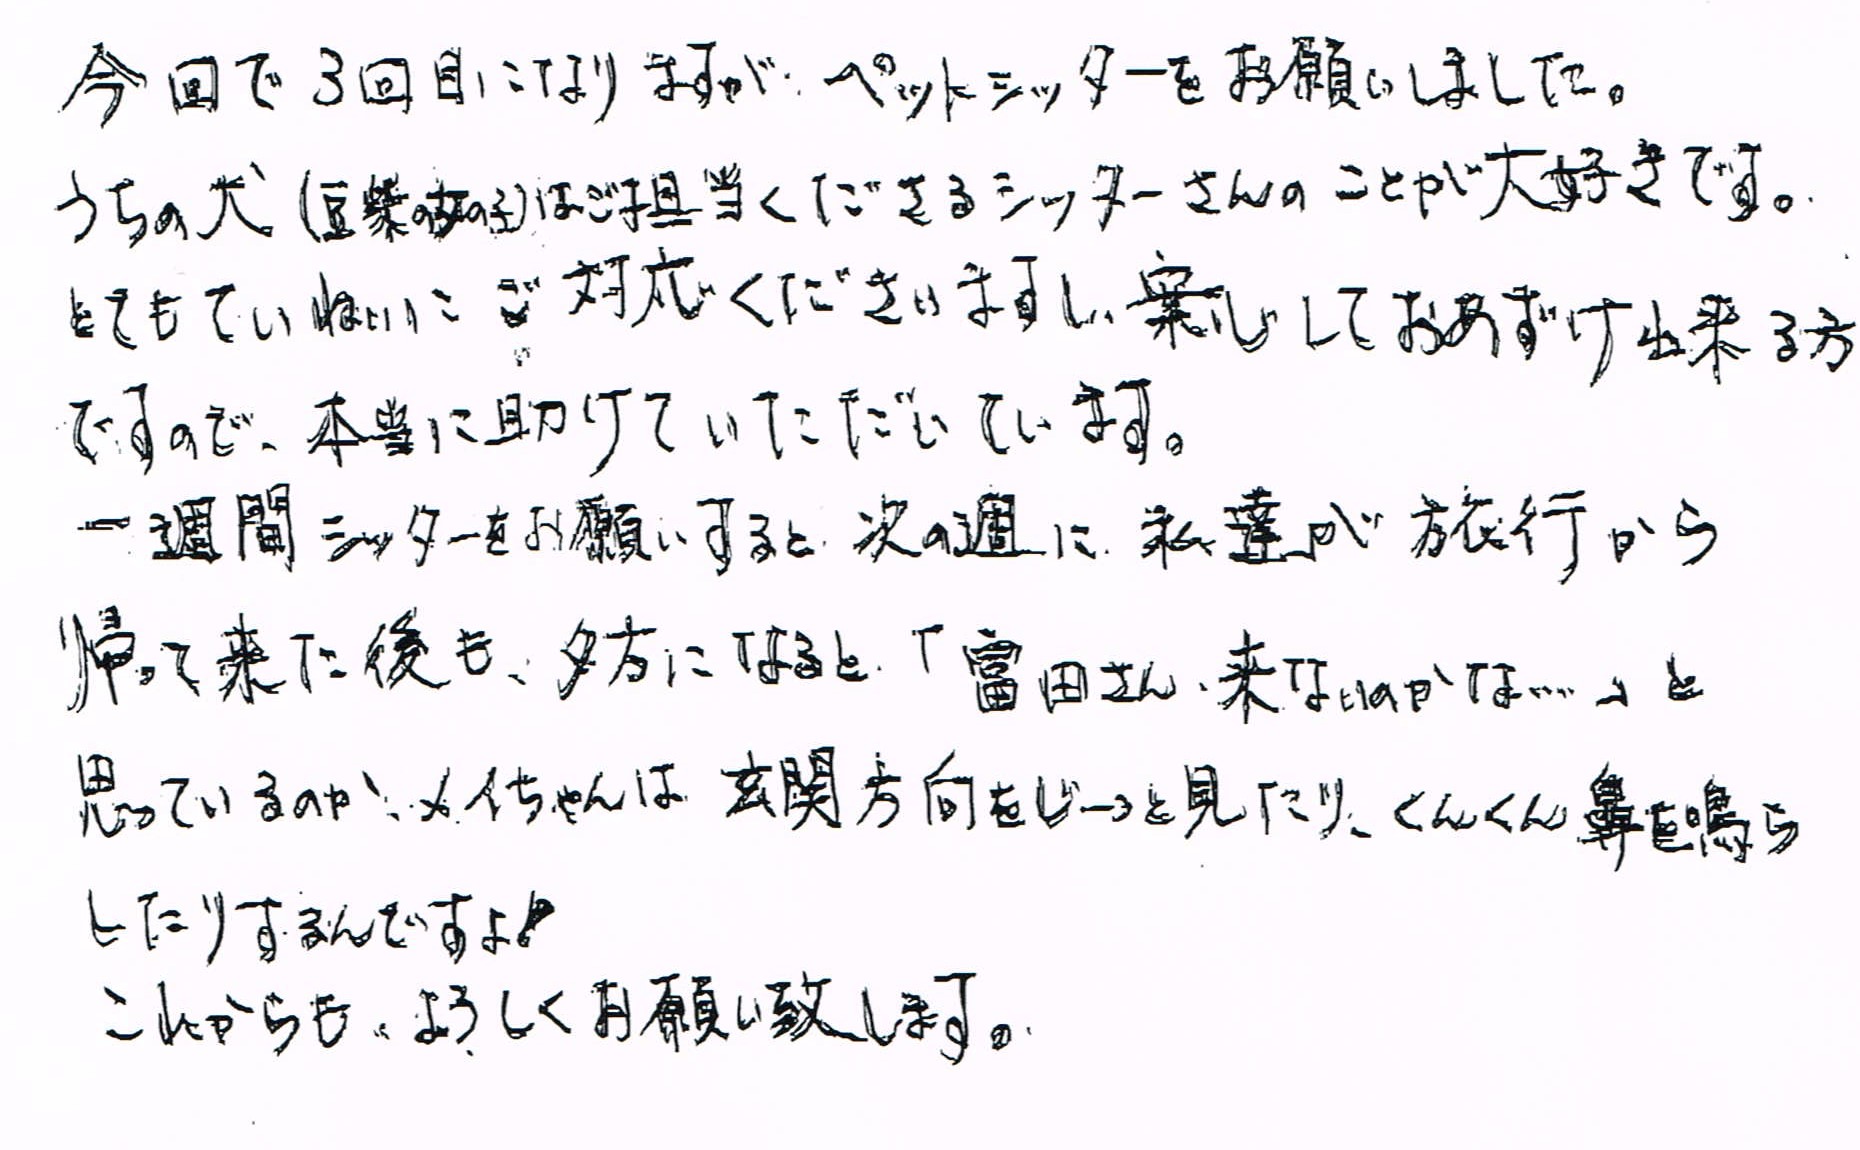 今回で3回目になりますが、ペットシッターをお願いしました。
うちの犬(豆柴の女の子)はご担当くださるシッターさんのことが大好きです。
とてもていねいにご対応くださいますし、安心しておあずけ出来る方
ですので、本当に助けていただいています。
一週間シッターをお願いすると、次の週に、私達が旅行から
帰って来た後も、夕方になると、「富田さん、来ないのかな……」と
思っているのか、メイちゃんは玄関方向をじーっと見たり、くんくん鼻を鳴ら
したりするんですよ!
これからも、よろしくお願い致します。